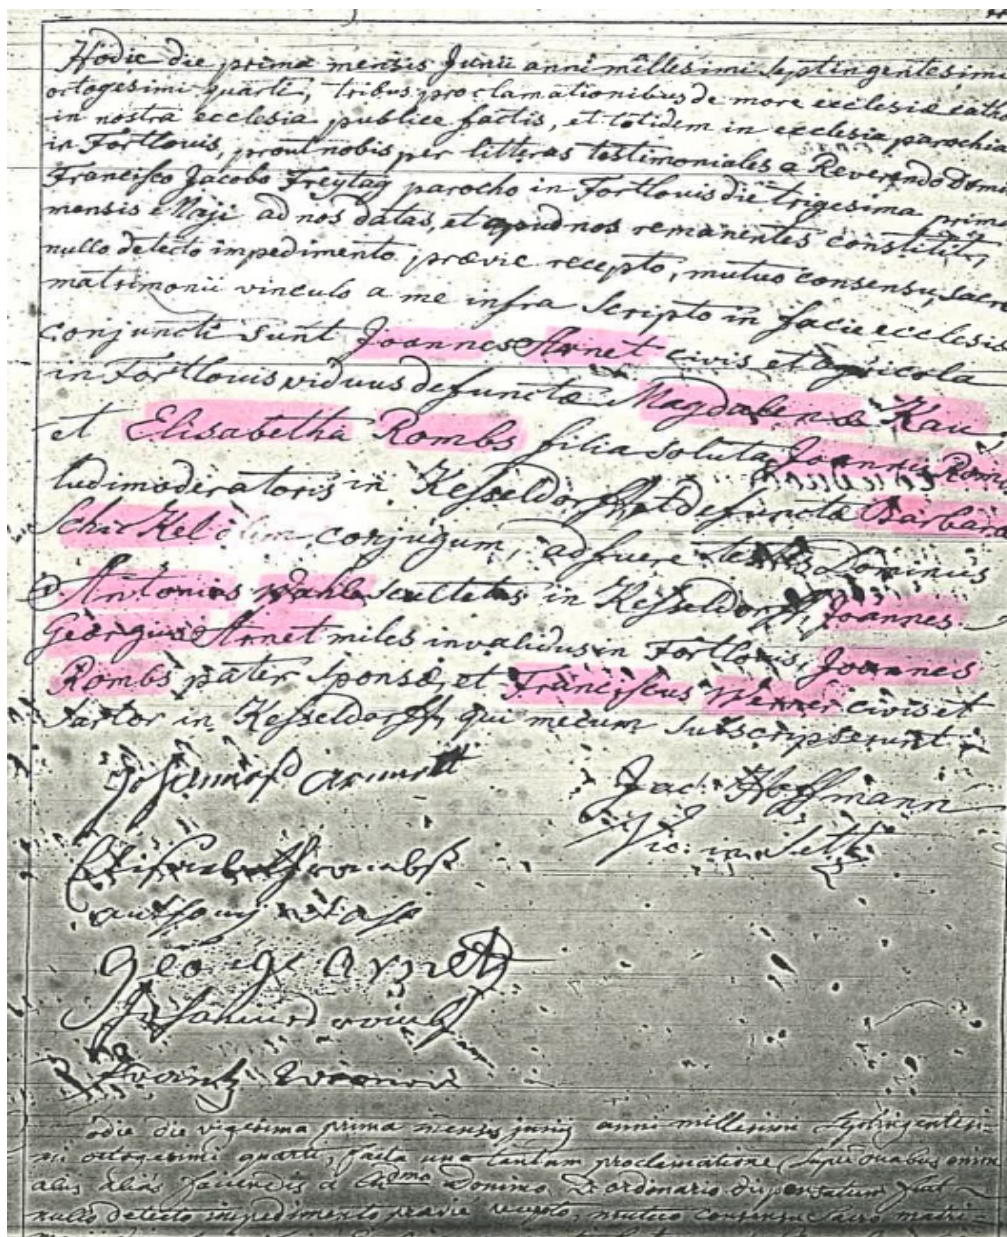 Hodie die prima mensis Junii anni millesimi septingentesimi
octogesimi quarti, tribus proclamationibus de more ecclesiæ cath
in nostra ecclesia publice factis, et totidem in ecclesia parochia
in Fortlouis, prout nobis per litteras testimoniales a Reverendo Domi
Francisco Jacobo Freytag parocho in Fortlouis die trigesima prim
mensis Maji ad nos datas, et apud nos remanentes constitit,
nullo detecto impedimento prævie recepto, mutuo consensu, sacro
matrimonii vinculo a me infra scripto in facie ecclesiæ
conjuncti sunt Joannes Arnet civis et agricola
in Fortlouis viduus defunctæ Magdalenæ Kau
et Elisabetha Rombs filia soluta Joannis Romb
ludimoderatoris in Kesseldorff et defunctæ Barbara
Schir Kel olim conjugum, adfuere testes Dominus
Antonius Scultetus in Kesseldorff, Joannes
Georgius Arnet miles invalidus in Fortlouis, Joannes
Rombs pater sponsæ, et Franciscus Werner civis et
sartor in Kesseldorff, qui mecum subscripserunt
Johannes arnett
Jac. Hoffmann
Vic. in
Elisabetha rombs
anthonj
George arnet
Johannes romb
Frantz werner
odie die vigesima prima mensis junij anni millesimi Septingentesi-
mi octogesimi quarti, facta una tantum proclamatione, super duabus enim
aliis alias faciendis a Domino D. ordinario dispensatum fuit
nullo detecto impedimento prævie recepto, mutuo consensu sacro matri-